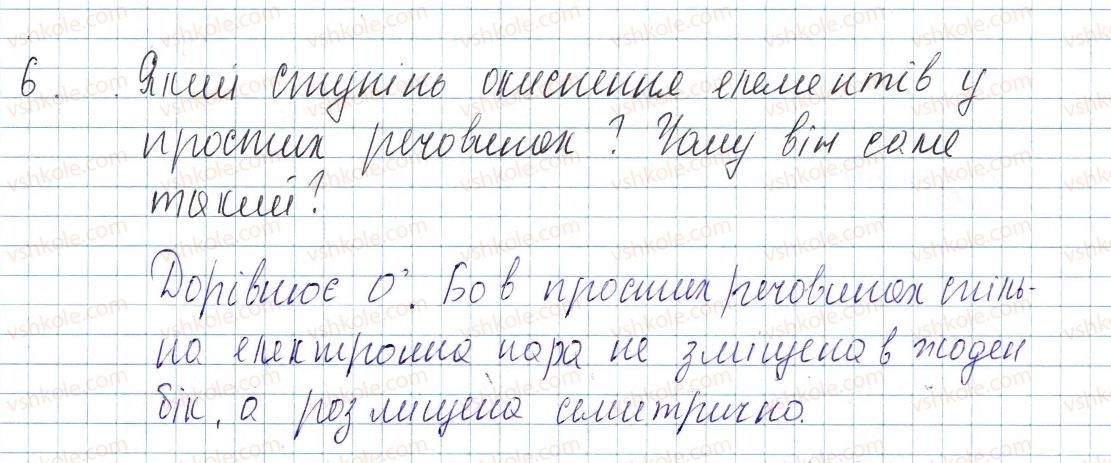 6. Який ступінь окиснення елементів у
простих речовинах? Чому він саме
такий?
Дорівнює 0. Бо в простих речовинах спіль-
на електронна пара не зміщена в жоден
бік, а розміщена симитрично.